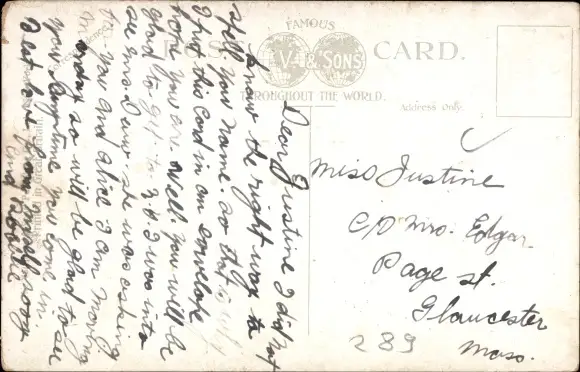 FAMOUS
POST CARD.
V. & SONS
THROUGHOUT THE WORLD.
Address Only.
Dear Justine I did not
know the right way to
spell you name. so that is why
I put this card in an envelope
hope you are well. you will be
glad to get to I was into
see Mrs she was asking
for you and alice I am moving
in so will be glad to see
you. anytime you come in.
from
and
Miss Justine
C/O Mrs. Edgar
Page St.
Gloucester
Mass.
289